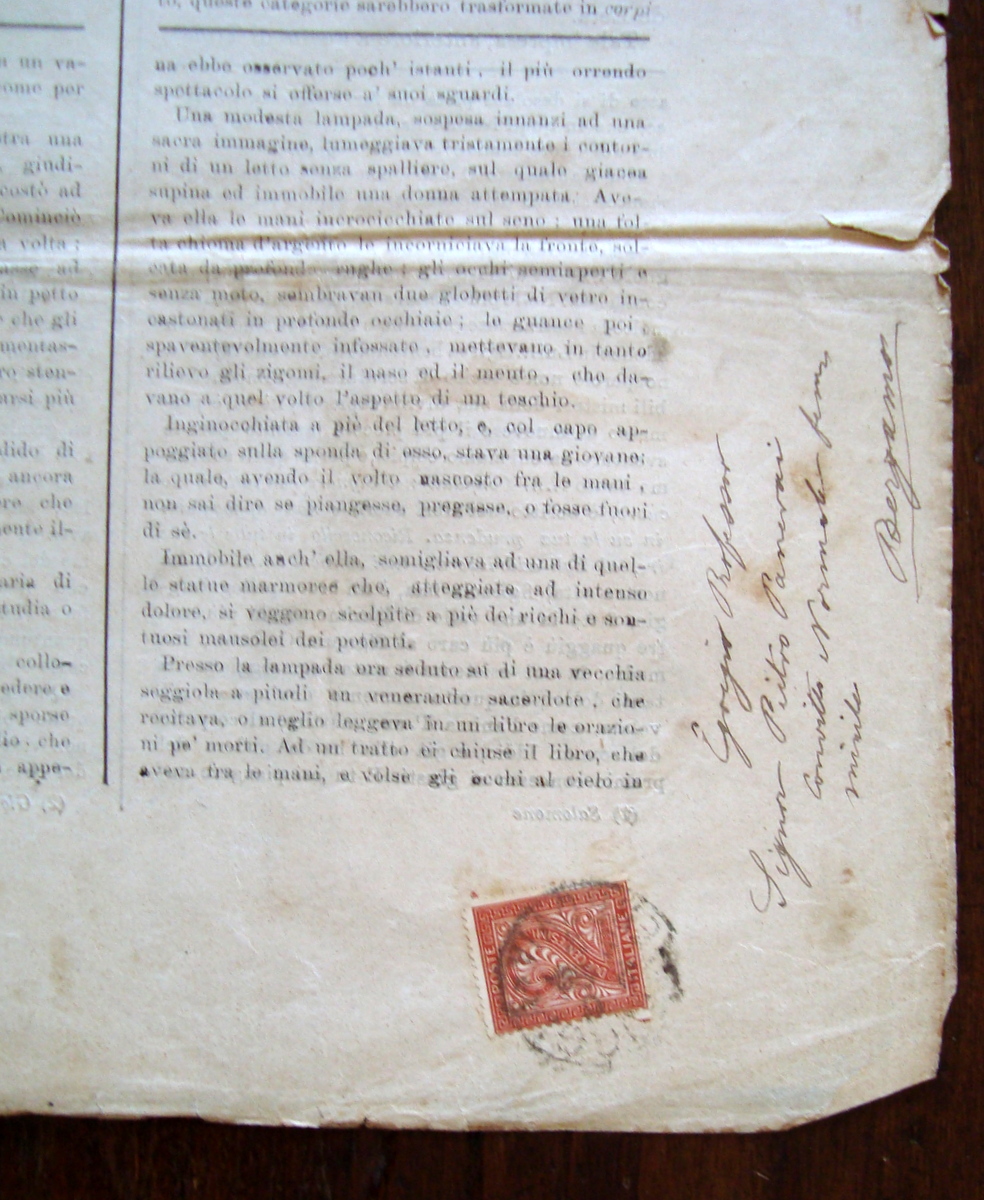 to, queste categorie sarebbero trasformate in corpi
a un va-
come per
stra una
, giudi-
costò ad
Cominciò
a volta;
asse ad
in petto
e che gli
mentas-
ro sten-
arsi più
lido di
ancora
re che
mente il-
aria di
studia o
collo-
edere e
sporse
io, che
appe-
na ebbe osservato poch' istanti, il più orrendo
spettacolo si offerse a' suoi sguardi.
Una modesta lampada, sospesa innanzi ad una
sacra immagine, lumeggiava tristamente i contor-
ni di un letto senza spalliere, sul quale giacea
supina ed immobile una donna attempata. Ave-
va ella le mani incrocicchiate sul seno; una fol-
ta chioma d'argento le incorniciava la fronte, sol-
cata da profonde rughe; gli occhi semiaperti e
senza moto, sembravan due globetti di vetro in-
castonati in profonde occhiaie; le guance poi
spaventevolmente infossate, mettevano in tanto
rilievo gli zigomi, il naso ed il mento, che da-
vano a quel volto l'aspetto di un teschio.
Inginocchiata a piè del letto, e, col capo ap-
poggiato sulla sponda di esso, stava una giovane;
la quale, avendo il volto nascosto fra le mani,
non sai dire se piangesse, pregasse, o fosse fuori
di sè.
Immobile anch' ella, somigliava ad una di quel-
le statue marmoree che, atteggiate ad intenso
dolore, si veggono scolpite a piè de' ricchi e son-
tuosi mausolei dei potenti.
Presso la lampada era seduto su di una vecchia
seggiola a piuoli un venerando sacerdote, che
recitava, o meglio leggeva in un libro le orazio-
ni pe' morti. Ad un tratto ei chiuse il libro, che
aveva fra le mani, e volse gli occhi al cielo in
Egregio Professor
Signor Pietro Panerai
Convitto Normale fem
minile
Bergamo
POSTE
ITALIANE
2
CENTESIMI